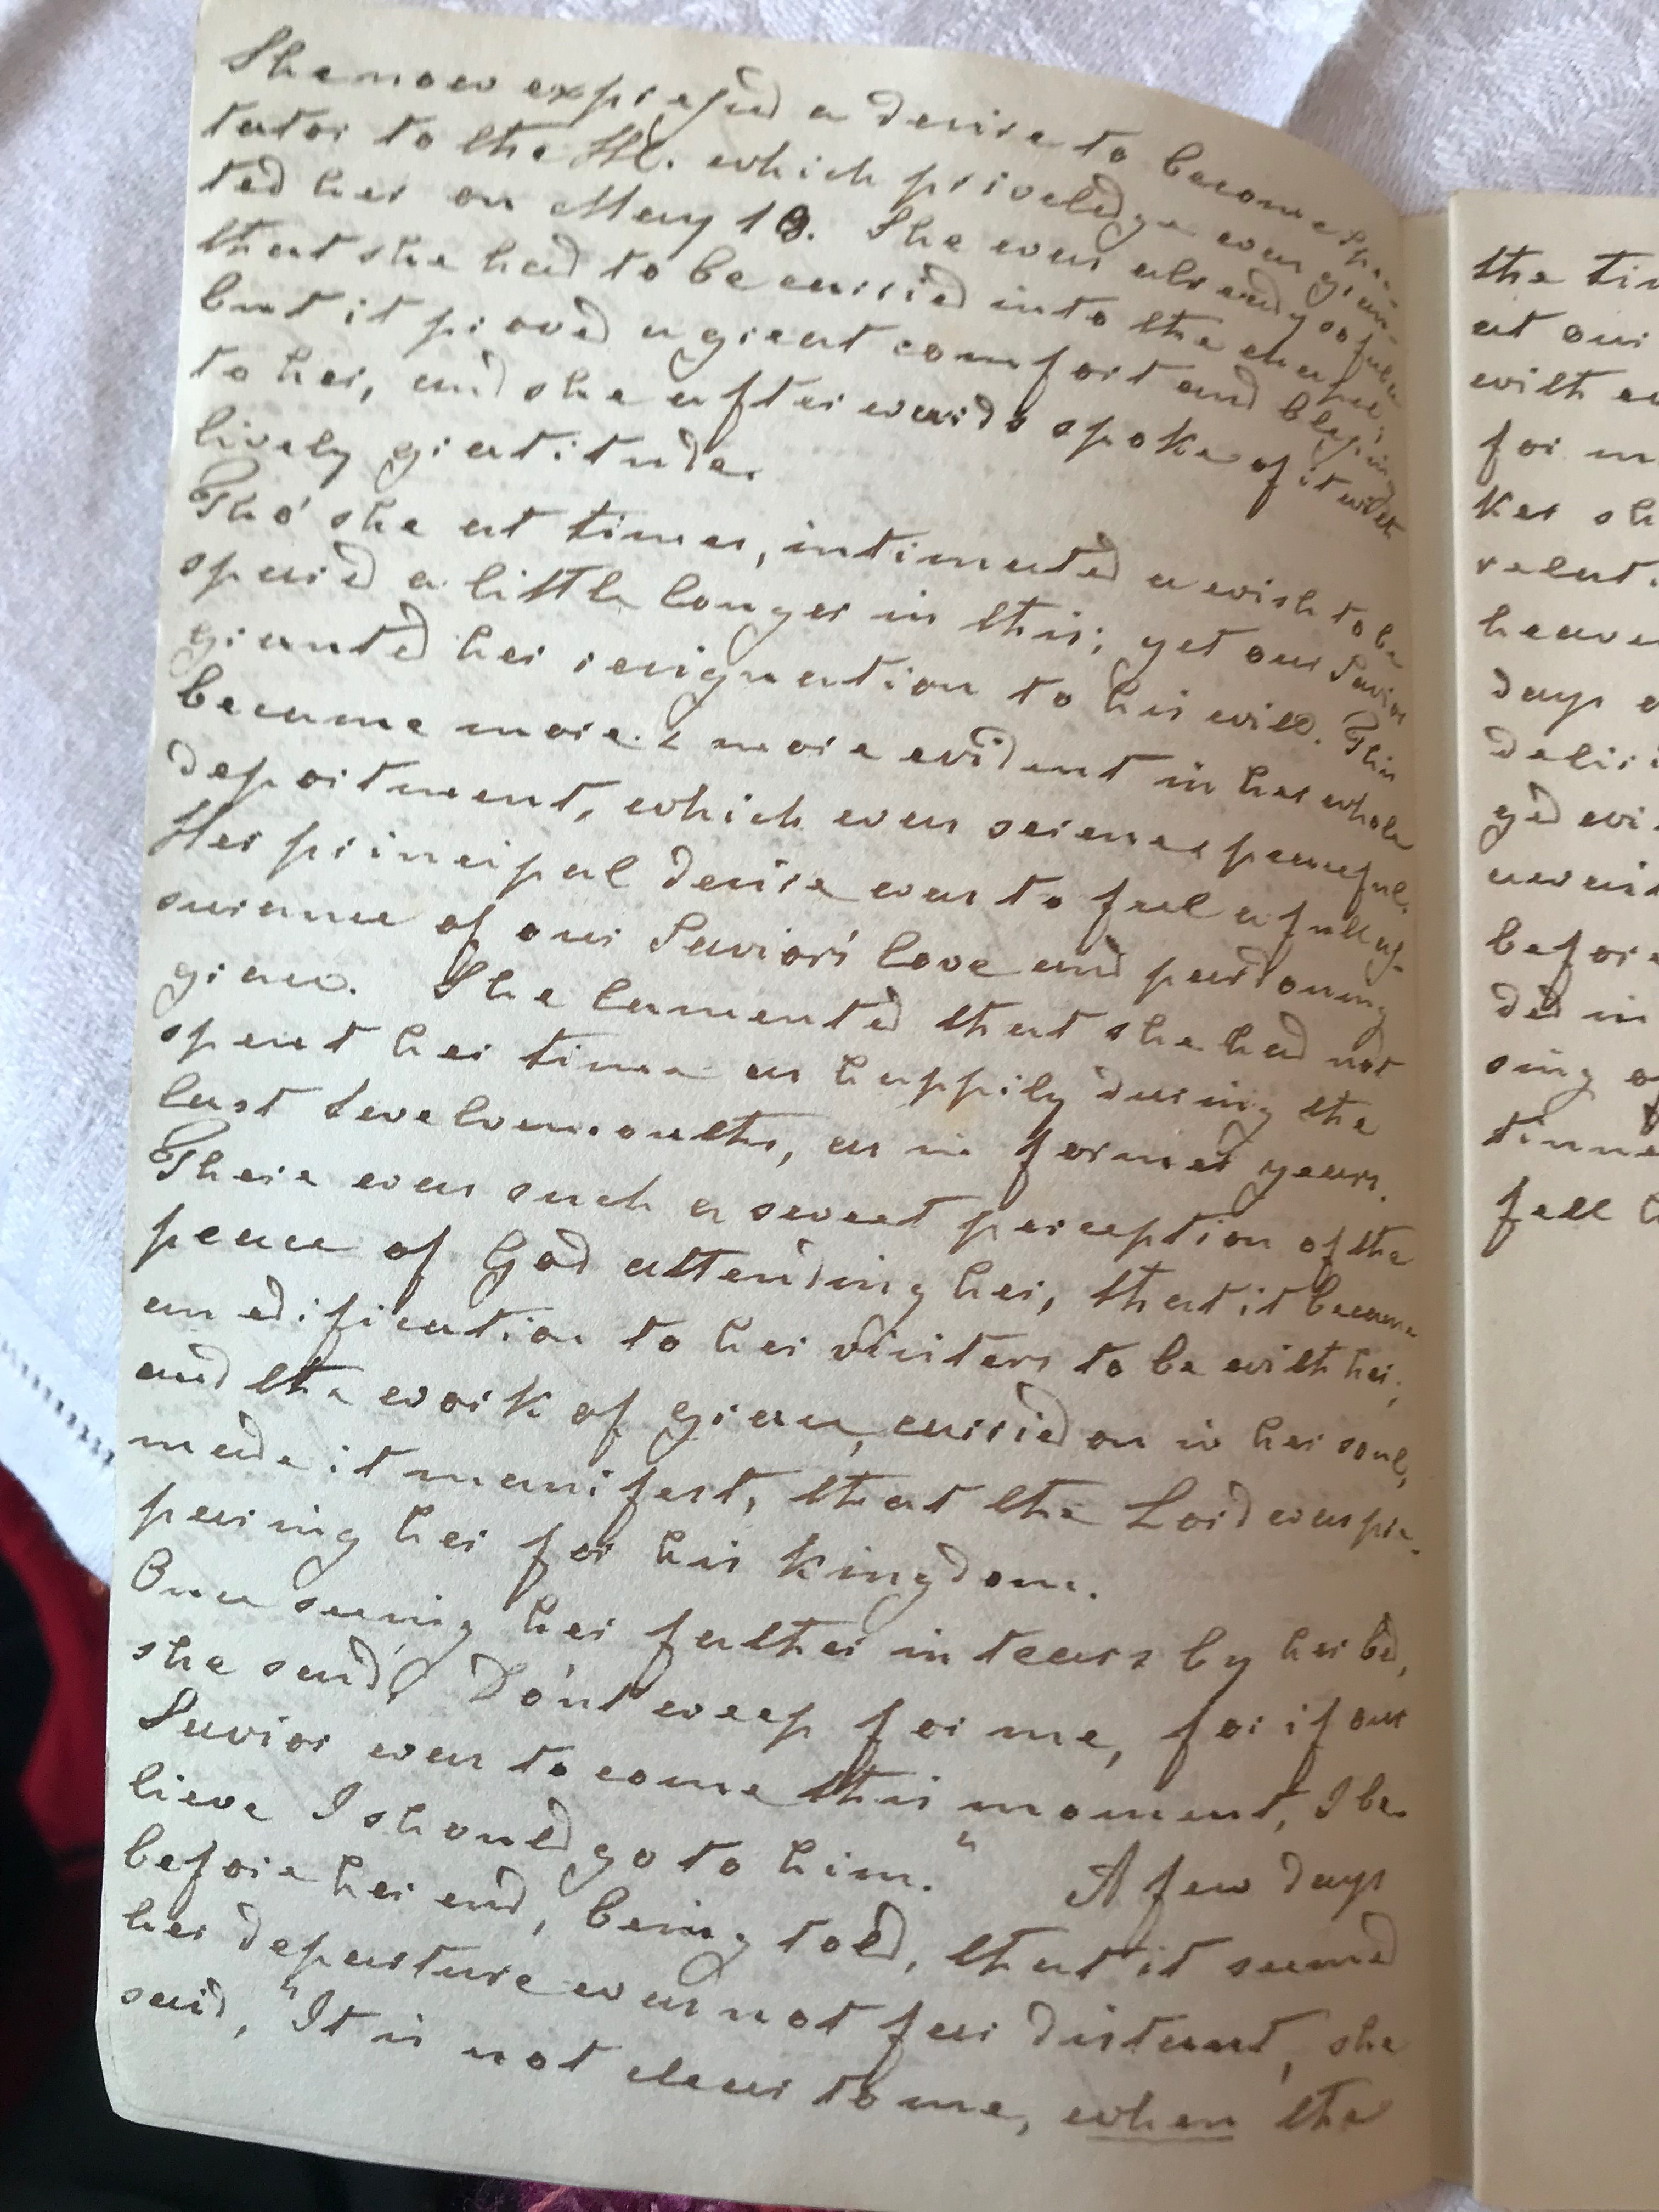 She now expressed a desire to become spec-
tator to the HC. which priveledge was gran-
ted her on May 13. She was already so feeble
that she had to be carried into the chapel,
but it proved a great comfort and blessing
to her, and she afterwards spoke of it with
lively gratitude.
Tho' she at times, intimated a wish to be
spared a little longer in this; yet our Savior
granted her resignation to his will. This
became more & more evident in her whole
deportment, which was serene & peaceful.
Her principal desire was to feel a full as-
surance of our Savior's love and pardoning
grace. She lamented that she had not
spent her time as happily during the
last twelvemonths, as in former years.
There was such a sweet perception of the
peace of God attending her, that it became
an edification to her visiters to be with her,
and the work of grace, carried on in her soul,
made it manifest, that the Lord was pre-
paring her for his kingdom.
Once seeing her father in tears by her bed,
she said, Do'nt weep for me, for if our
Savior was to come this moment, I be-
lieve I should go to him." A few days
before her end, being told, that it seemed
her departure was not far distant, she
said, "It is not clear to me, when the
the
at our
for
days
before
fell